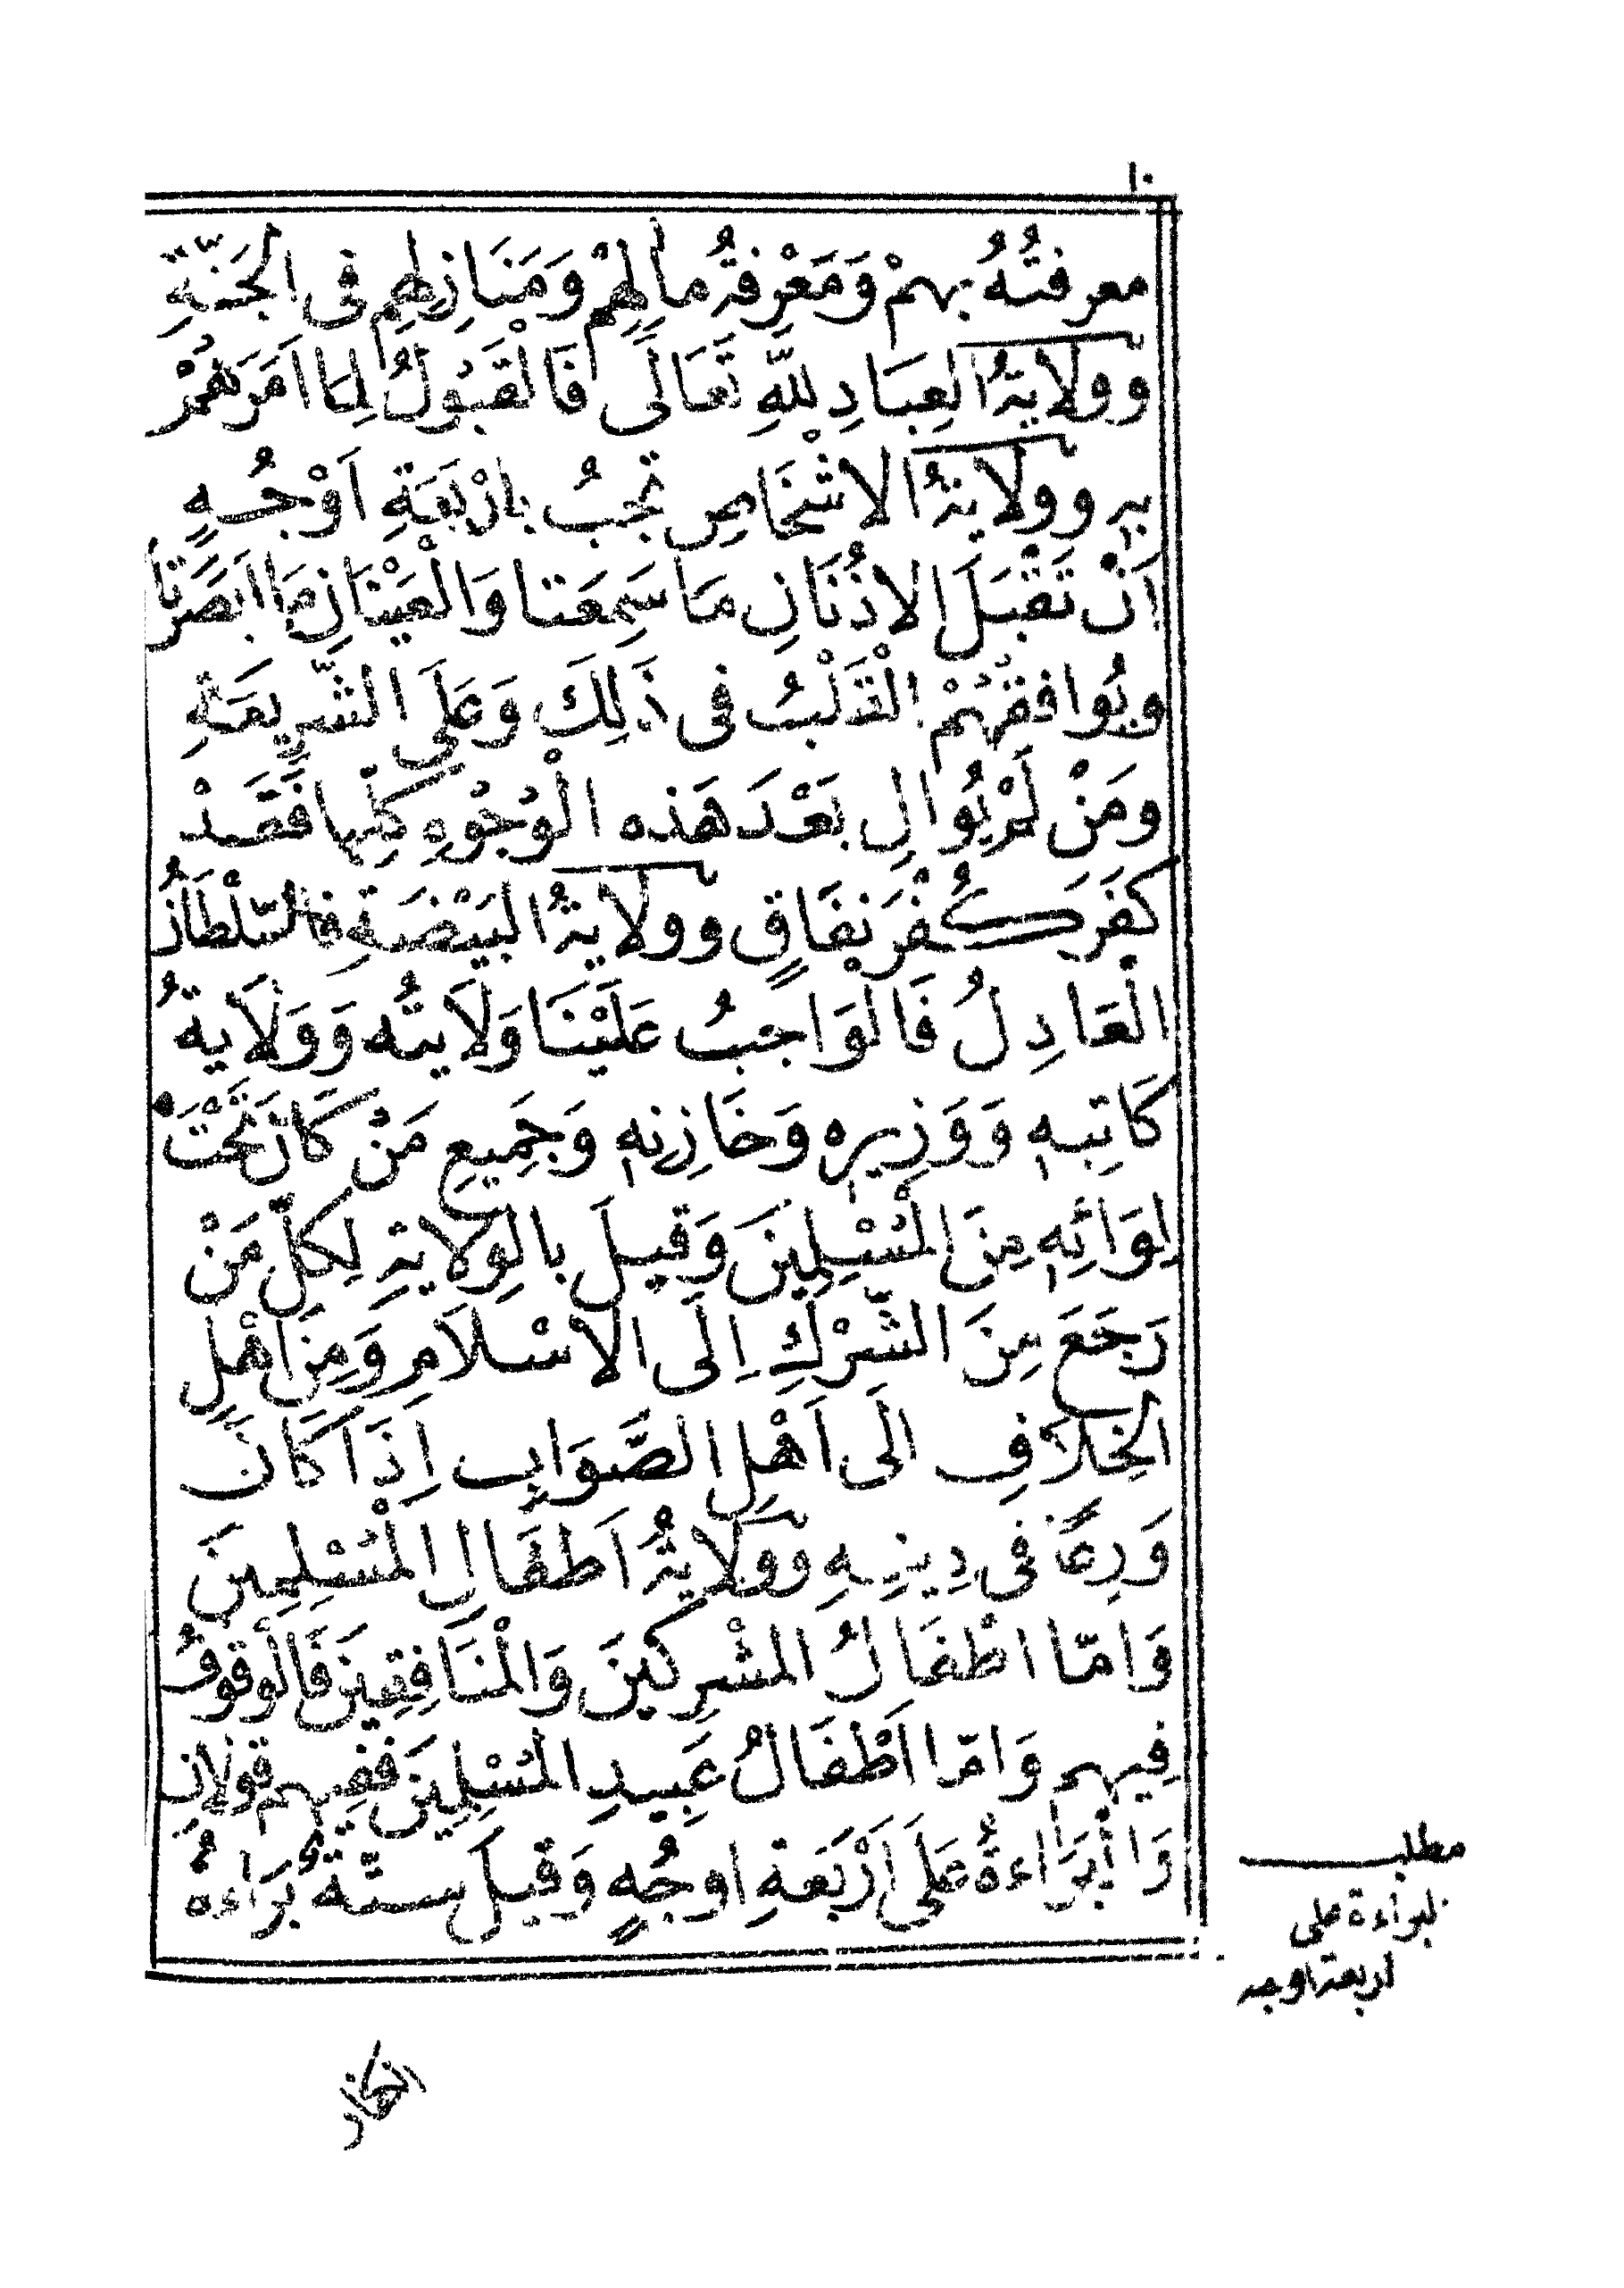 ١٠
معرفتُهُ بهمْ وَمَعْرفةُ مالَهمْ وَمَنَازِلهِم فى الجَنّةِ
وولايةُ العِبَادِ لِلّهِ تَعَالَى فَالْقَبُولُ لِمَا اَمَرَهُمْ
بِهِ وولايةُ الاشْخَاصِ تجبُ بارْبَعَةِ اَوْجُهٍ
اَنْ تَقْبَلَ الاذُنَانِ مَا سَمِعَتا وَالْعَيْنَانِ مَا ابَصَرَتا
ويُوافقهُمْ الْقَلْبُ فى ذَلِكَ وَعَلَى الشَّرِيعَةِ
ومَنْ لَمْ يُوالِ بَعْدَ هَذه الْوُجُوْهِ كلِّها فَقَدْ
كَفَرَ كُفْرَ نِفَاقٍ وولايةُ البَيْضَةِ فالسّلْطَانُ
الْعَادِلُ فَالوَاجبُ عَلَيْنَا وَلَايتُه وَوَلَايةُ
كَاتِبهِ وَوَزِيرِه وَخَازِنِهِ وَجَمِيعِ مَنْ كَانَ تَحْتَ
لِوَائِهِ مِنَ الْمُسْلِمِينَ وَقيلَ بالوِلايةِ لِكلِّ مَنْ
رَجَعَ مِنَ الشّرْكِ اِلَى الاسْلَامِ وَمِنَ اهْلِ
الخِلَافِ الَى اَهْلِ الصَّوَابِ اِذَا كَانَ
وَرِعًا فى دِينِهِ وولايةُ اَطفَالِ الْمُسْلِمِينَ
وَامّا اطْفَالُ المشْرِكينَ وَالْمنَافِقِينَ فَالْوقوفُ
فِيهم وَامّا اَطْفَالُ عَبِيدِ المُسْلِمِينَ ففِيهم قولانِ
وَالْبَرَاءةُ عَلَى اَرْبَعةِ اوجُهٍ وَقيلَ ستّةُ بَرَاءةُ
مطلب
البراءة على
اربعة اوجه